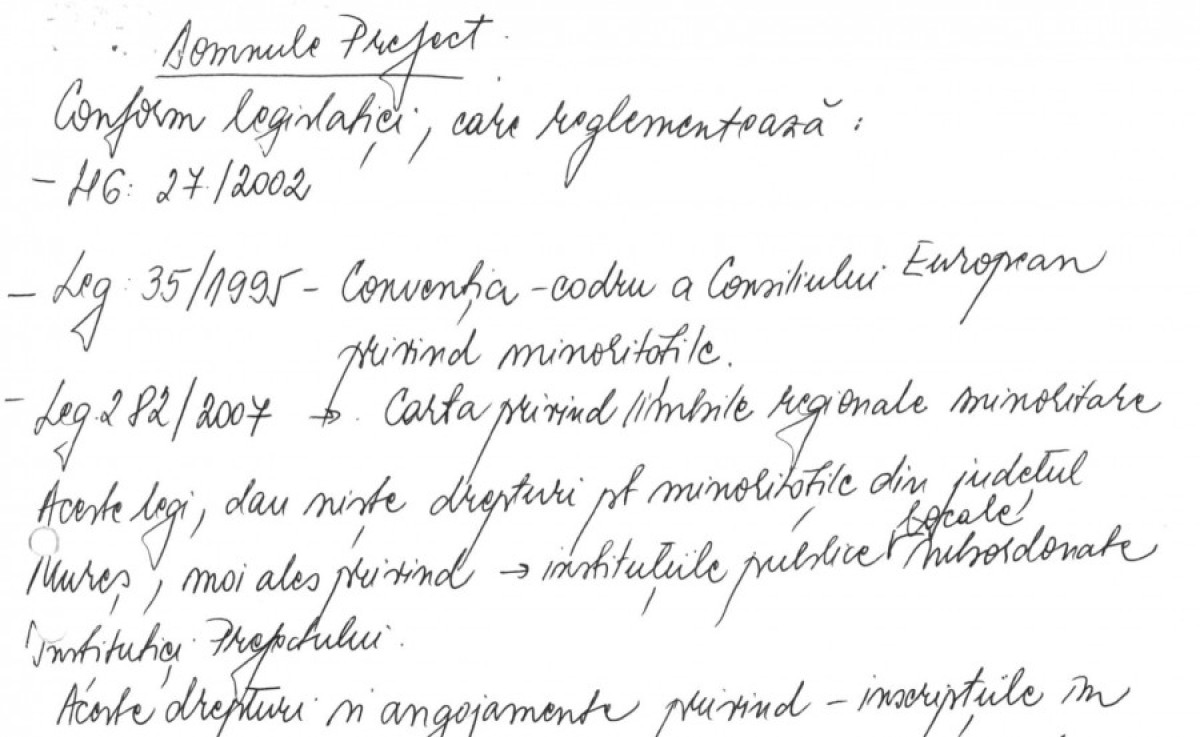 Domnule Prefect.
Conform legislației, care reglementează :
- HG: 27/2002
- Leg: 35/1995 - Convenția-cadru a Consiliului European
privind minoritățile.
- Leg. 282/2007 → Carta privind limbile regionale minoritare
Aceste legi, dau niște drepturi pt minoritățile din județul
Mureș, mai ales privind → instituțiile publice locale subordonate
Instituției Prefectului.
Aceste drepturi și angajamente privind - inscripțiile în